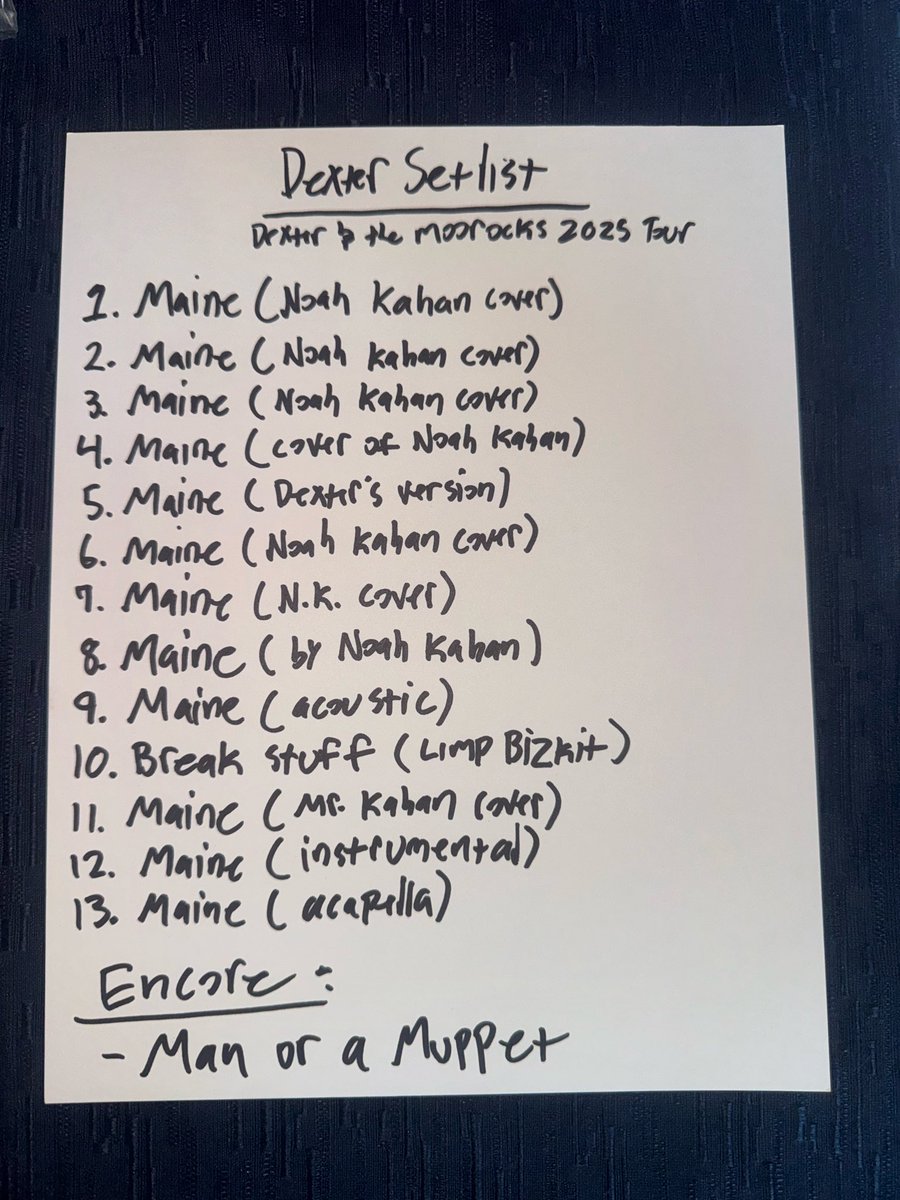 Dexter Setlist
Dexter & the moorocks 2025 Tour
1. Maine (Noah Kahan cover)
2. Maine (Noah Kahan cover)
3. Maine (Noah Kahan cover)
4. Maine (cover of Noah Kahan)
5. Maine (Dexter's version)
6. Maine (Noah Kahan cover)
7. Maine (N.K. cover)
8. Maine (by Noah Kahan)
9. Maine (acoustic)
10. Break stuff (Limp Bizkit)
11. Maine (Mr. Kahan cover)
12. Maine (instrumental)
13. Maine (acapella)
Encore:
- Man or a Muppet